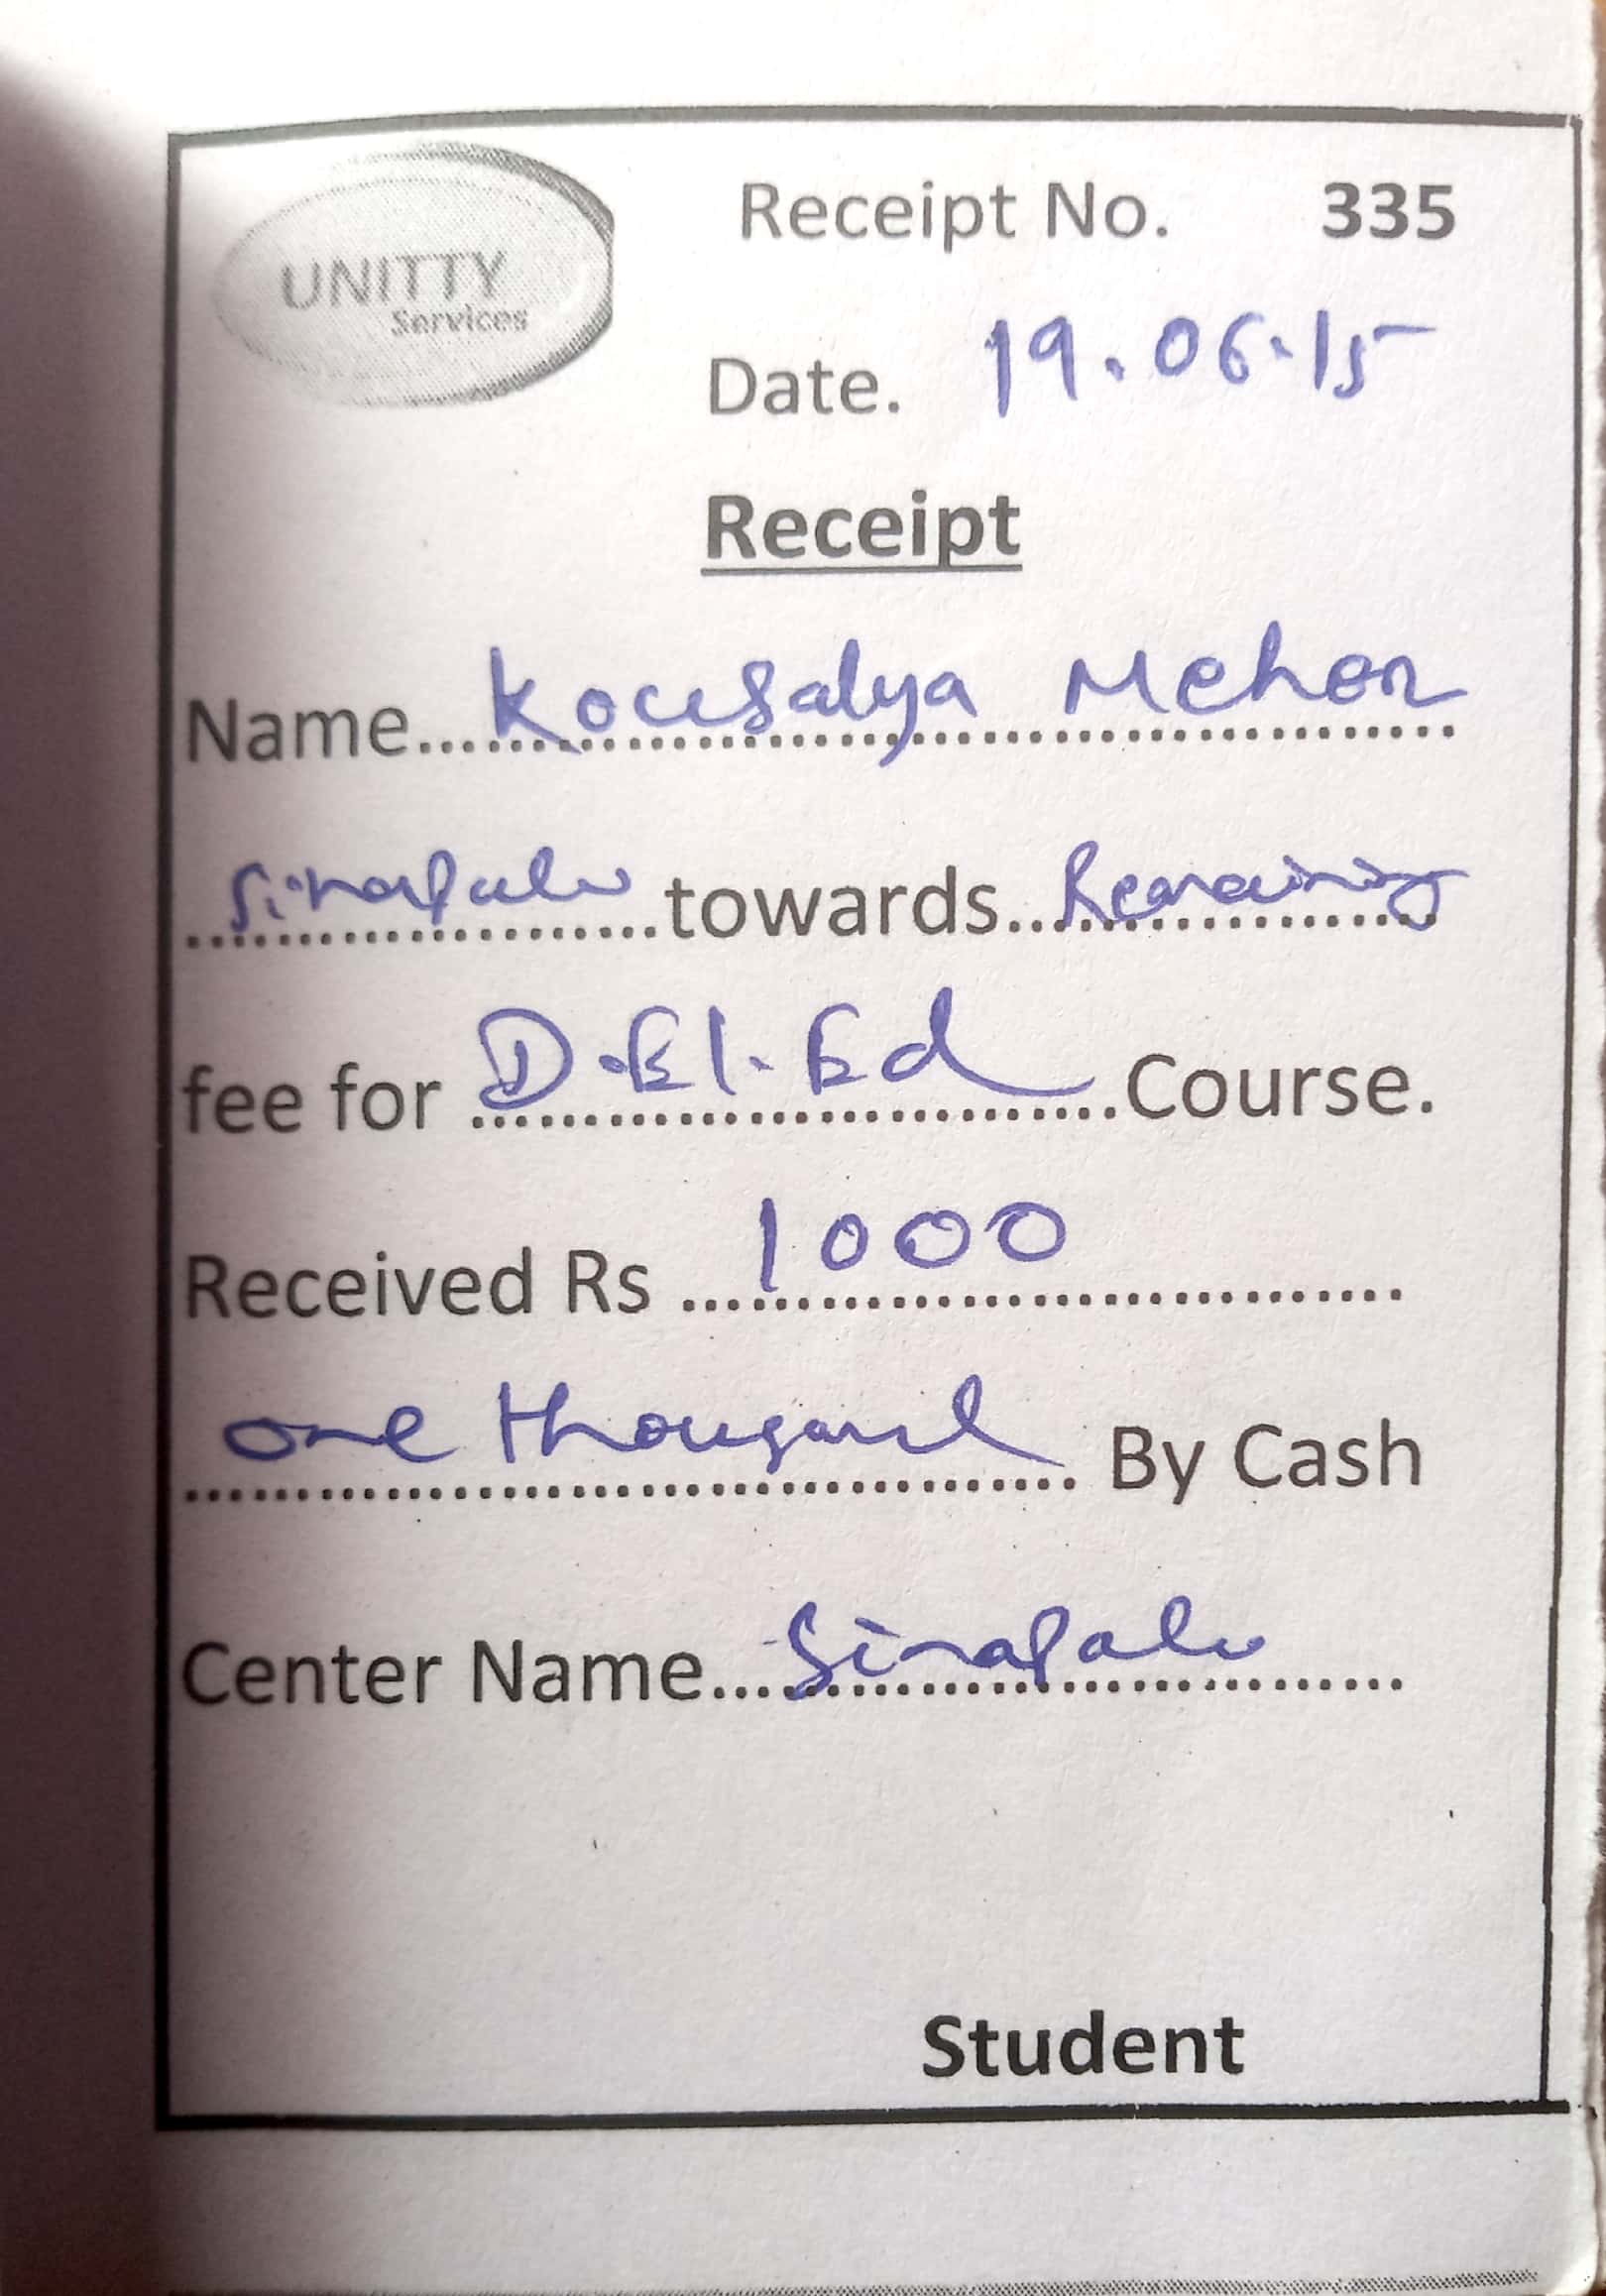 UNITTY
Services
Receipt No. 335
Date. 19.06.15
Receipt
Name...Kousalya Meher
Sinapali towards...Remaining
fee for D.El.Ed Course.
Received Rs ...1000
one thousand By Cash
Center Name...Sinapali
Student